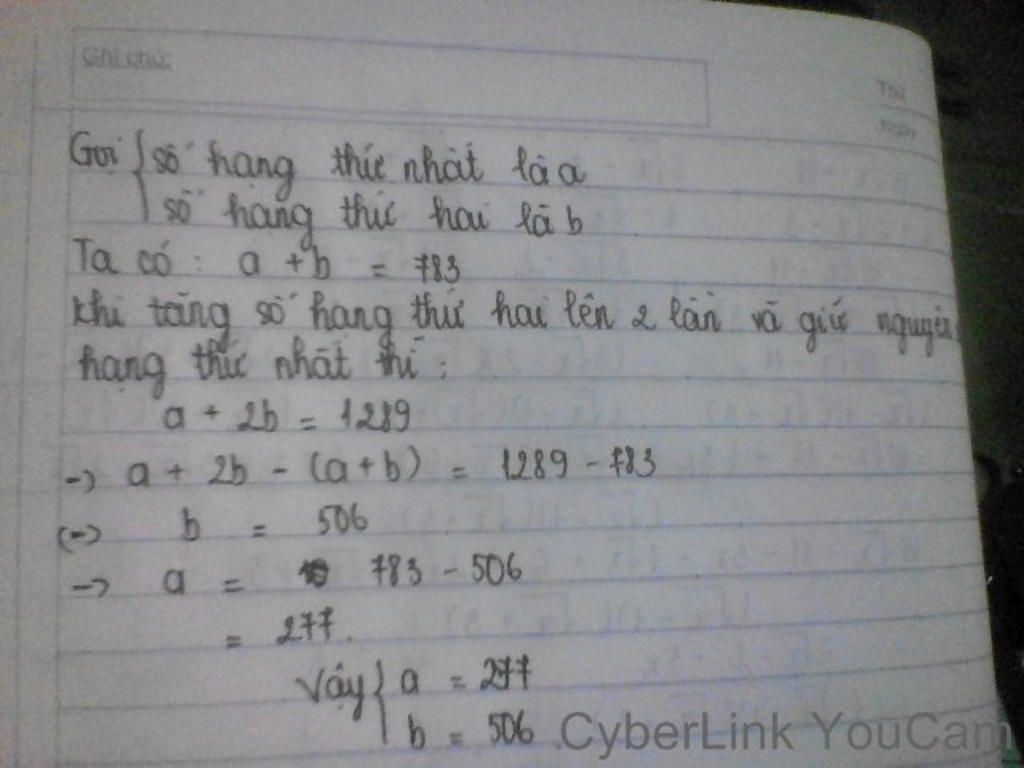 Ghi chú:
Thứ
Ngày
Gọi { số hạng thứ nhất là a
số hạng thứ hai là b
Ta có : a + b = 783
Khi tăng số hạng thứ hai lên 2 lần và giữ nguyên
hạng thứ nhất thì :
a + 2b = 1289
-> a + 2b - (a + b) = 1289 - 783
<-> b = 506
-> a = 783 - 506
= 277.
Vậy { a = 277
b = 506
CyberLink YouCam